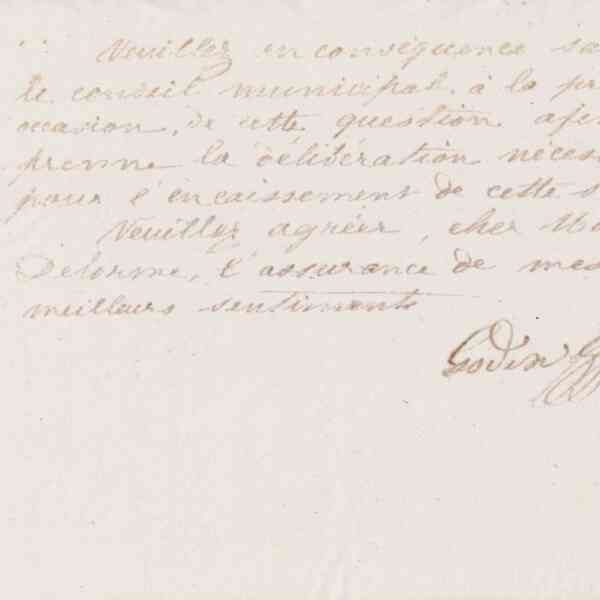 Veuillez en conséquence sa
le conseil municipal à la pr
occasion, de cette question afin
prenne la délibération néces
pour l'encaissement de cette s
Veuillez agréer, cher Mo
Delorme, l'assurance de mes
meilleurs sentiments
Godin